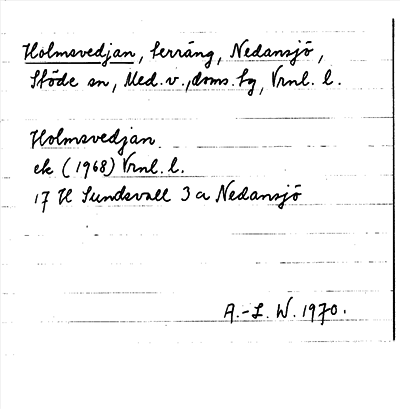 Holmsvedjan, terräng, Nedansjö,
Stöde sn, Med. v., doms. hg, Vrnl. l.
Holmsvedjan
ek (1968) Vrnl. l.
17 H Sundsvall 3 a Nedansjö
A.-L. W. 1970.